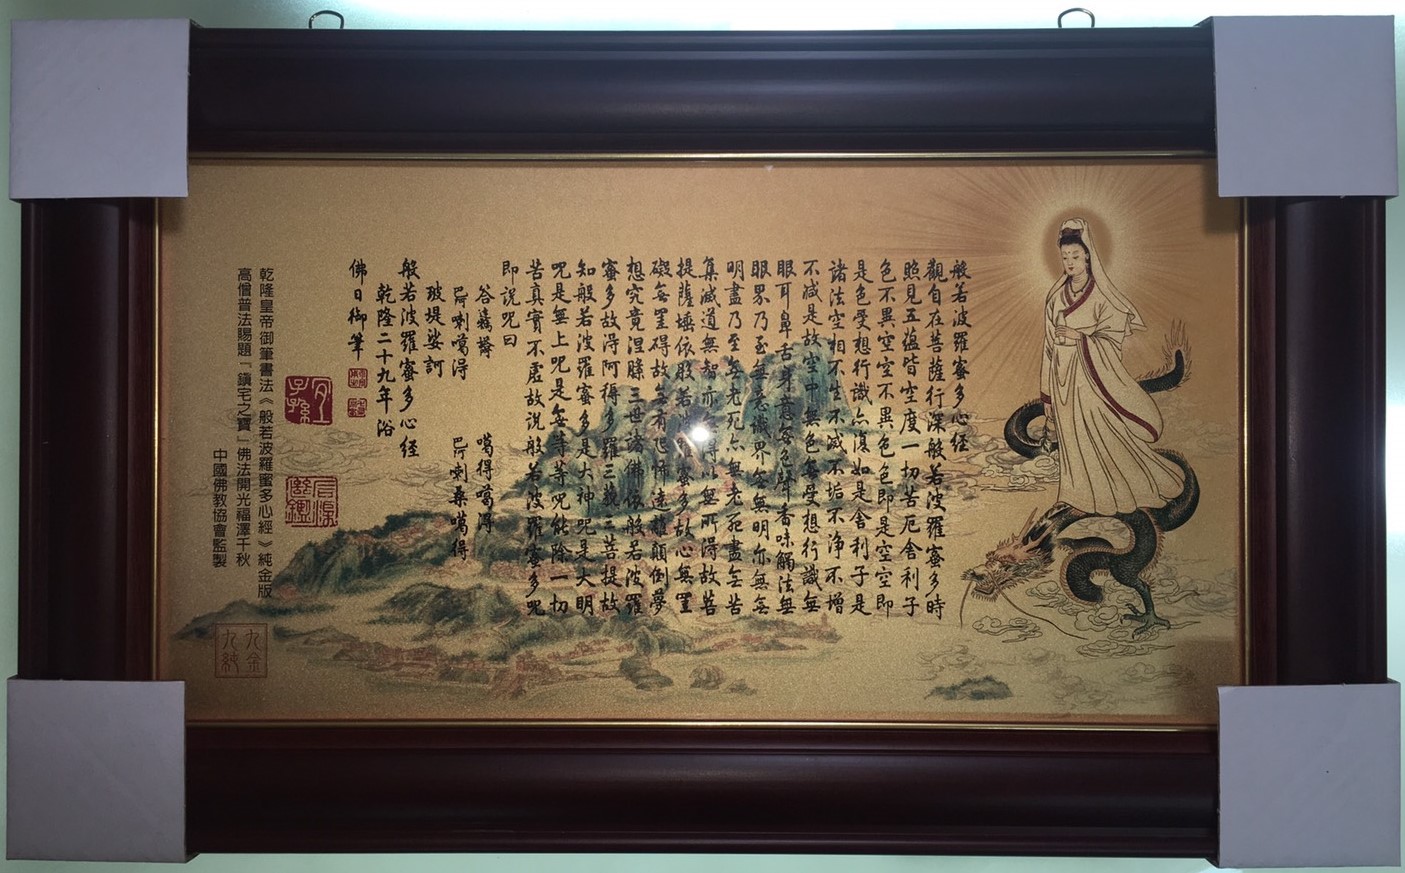 般若波羅蜜多心经
觀自在菩薩行深般若波羅蜜多時
照見五蘊皆空度一切苦厄舍利子
色不異空空不異色色即是空空即
是色受想行識亦復如是舍利子是
諸法空相不生不滅不垢不浄不增
不减是故空中無色無受想行識無
眼耳鼻舌身意無色聲香味觸法無
眼界乃至無意識界無無明亦無無
明盡乃至無老死亦無老死盡無苦
集滅道無智亦無得以無所得故菩
提薩埵依般若波羅蜜多故心無罣
礙無罣碍故無有恐怖遠離顛倒夢
想究竟涅槃三世諸佛依般若波羅
蜜多故得阿得多羅三藐三菩提故
知般若波羅蜜多是大神呪是大明
呪是無上呪是無等等呪能除一切
苦真實不虛故说般若波羅蜜多呪
即说呪曰
噶得噶得
巴喇噶得 巴喇桑噶得
玻堤娑訶
般若波羅蜜多心经
乾隆二十九年浴
佛日御筆
乾隆皇帝御筆書法《般若波羅蜜多心經》純金版
高僧普法賜題『鎮宅之寶』佛法開光福澤千秋
中國佛教協會監製
九金
九純